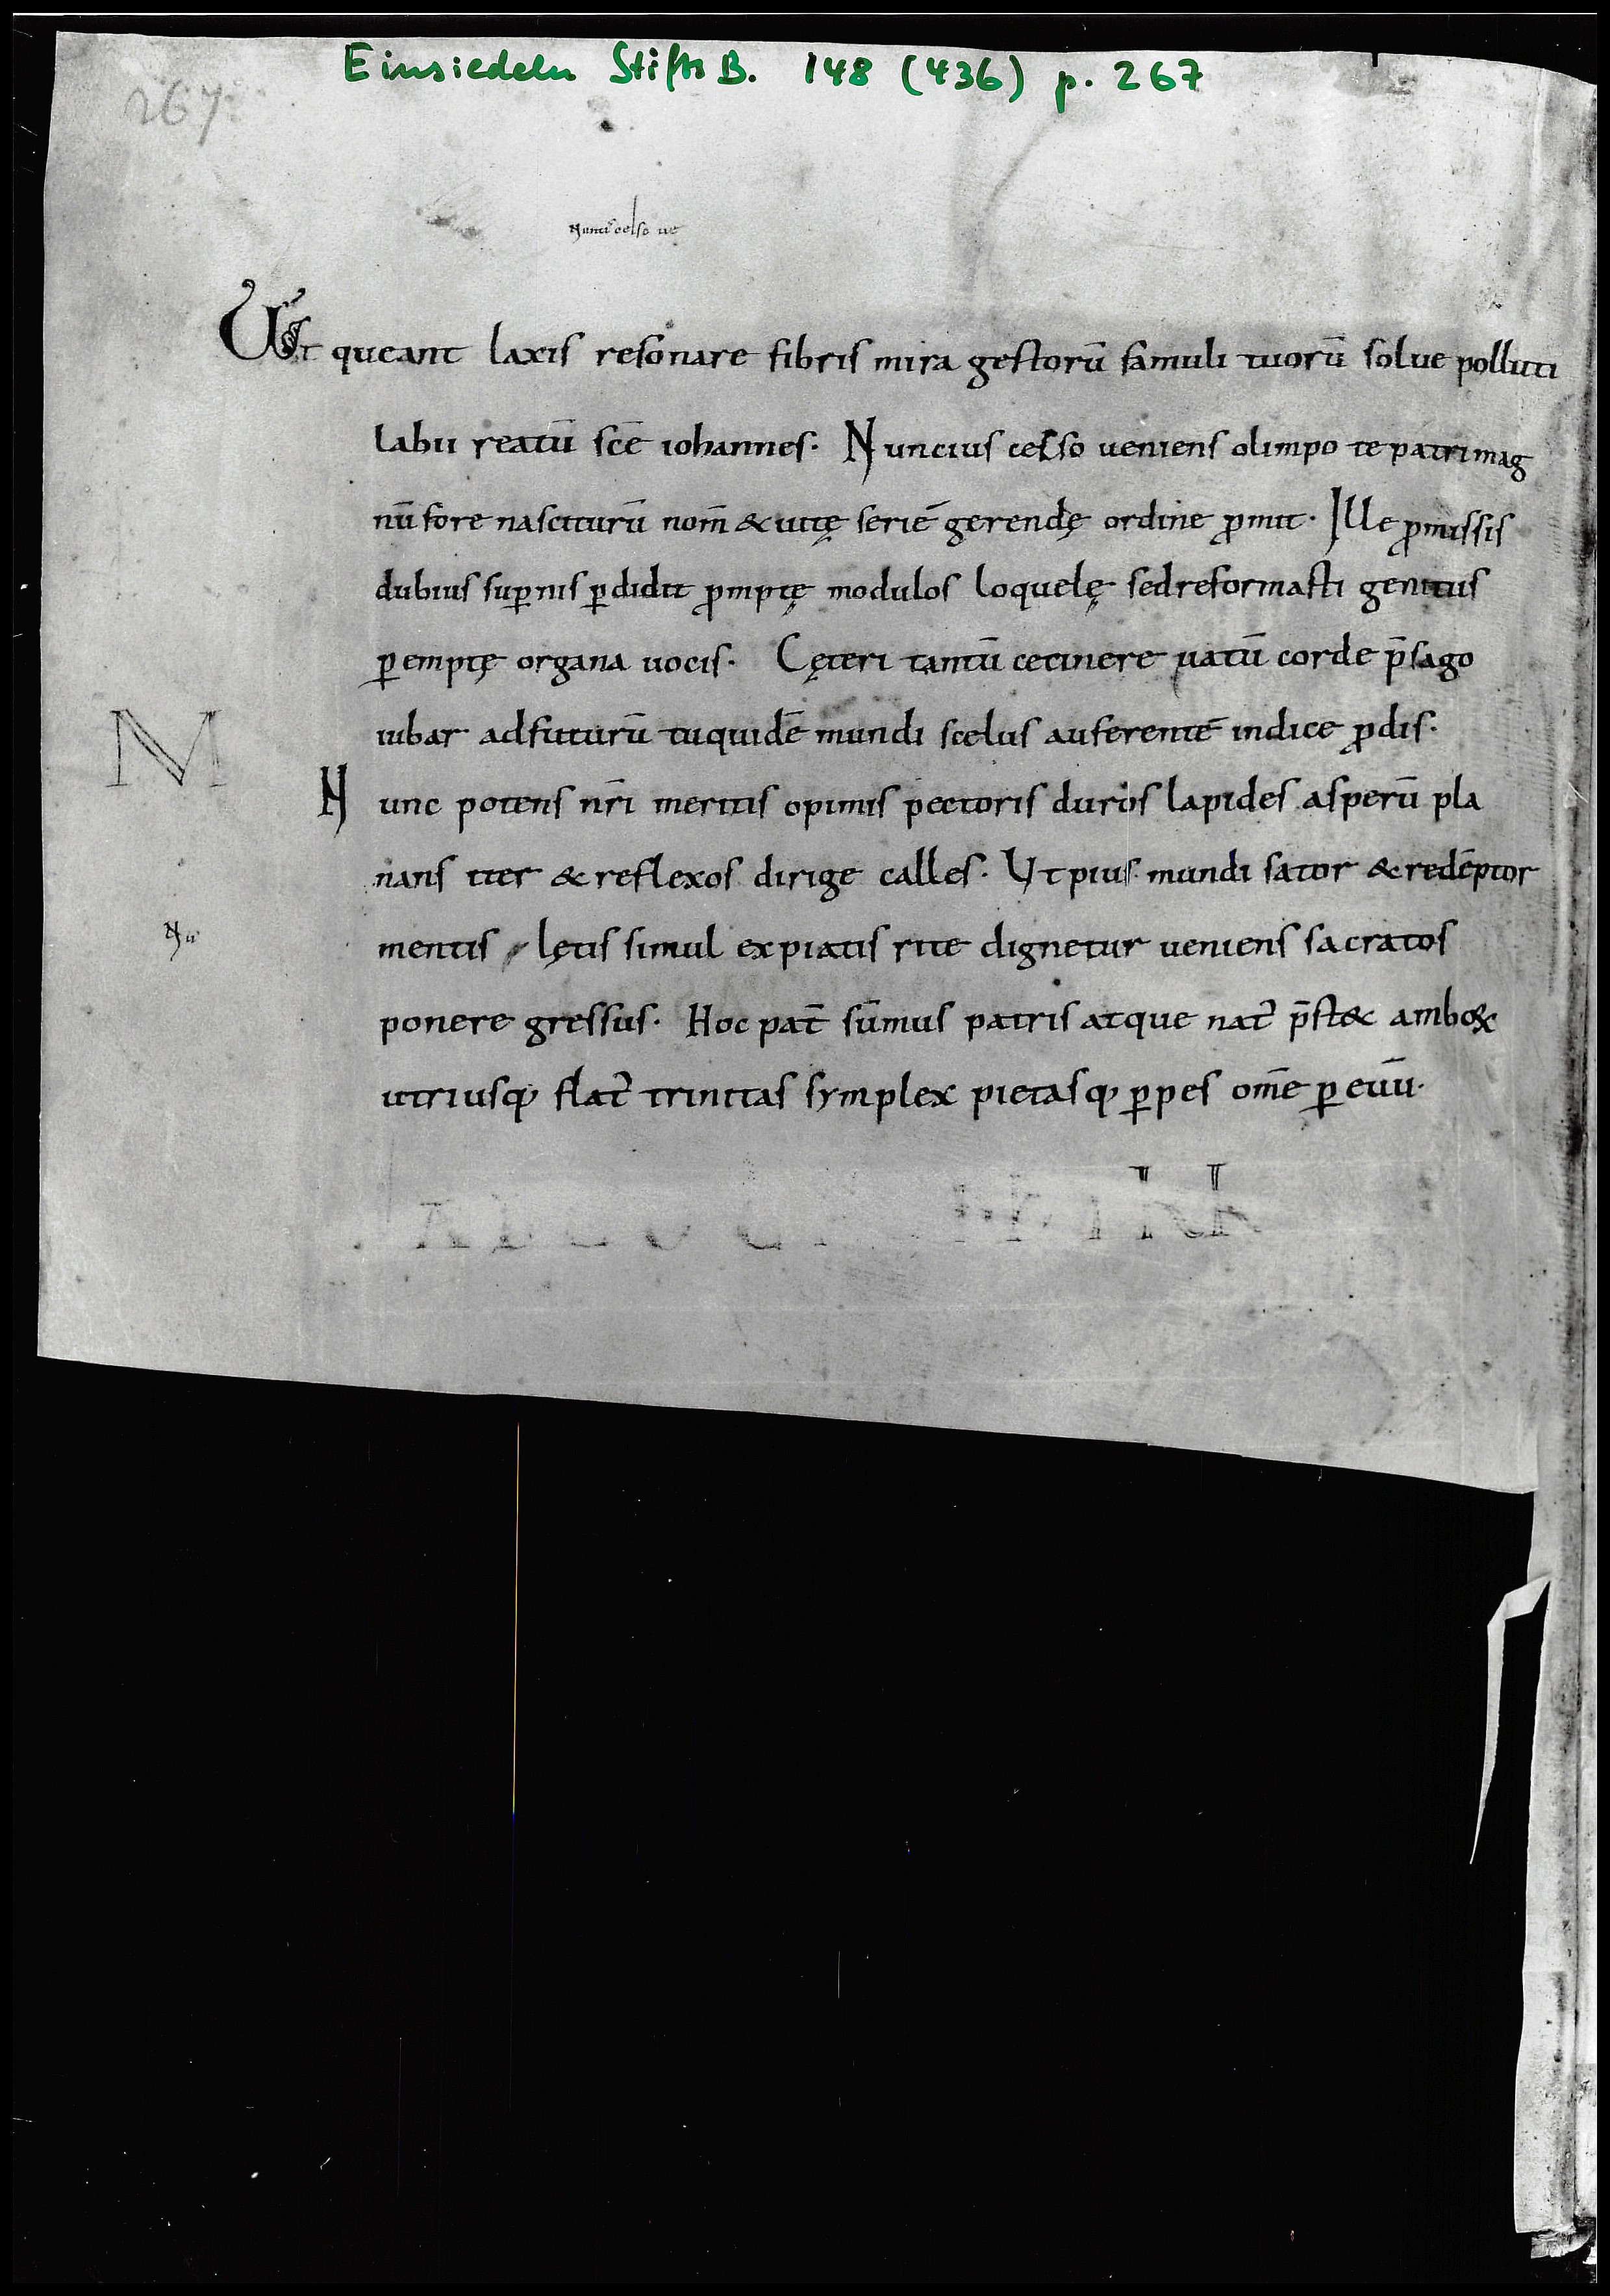 Einsiedeln Stifts B. 148 (436) p. 267
267
Nunci᾽ celso ue
Ut queant laxis resonare fibris mira gestorū famuli tuorū solue polluti
labii reatū scē iohannes. Nuncius celso ueniens olimpo te patri mag
nū fore nasciturū nom̄ & uitę seriē gerendę ordine ꝓmit. Ille ꝓmissis
dubius suꝑnis ꝑdidit ꝓmptę modulos loquelę sed reformasti genitus
ꝑemptę organa uocis. Cęteri tantū cecinere uatū corde p̄sago
iubar adfuturū tu quidē mundi scelus auferentē indice ꝓdis.
M
Nunc potens nr̄i meritis opimis pectoris duros lapides asperū pla
nans iter & reflexos dirige calles. Ut pius mundi sator & redēptor
Nu
mentis lętis simul expiatis rite dignetur ueniens sacratos
ponere gressus. Hoc pat̄ sūmus patris atque nat᾽ p̄st& amboꝝ
utriusq; flat᾽ trinitas symplex pietasq; ꝑpes om̄e ꝑ euū.